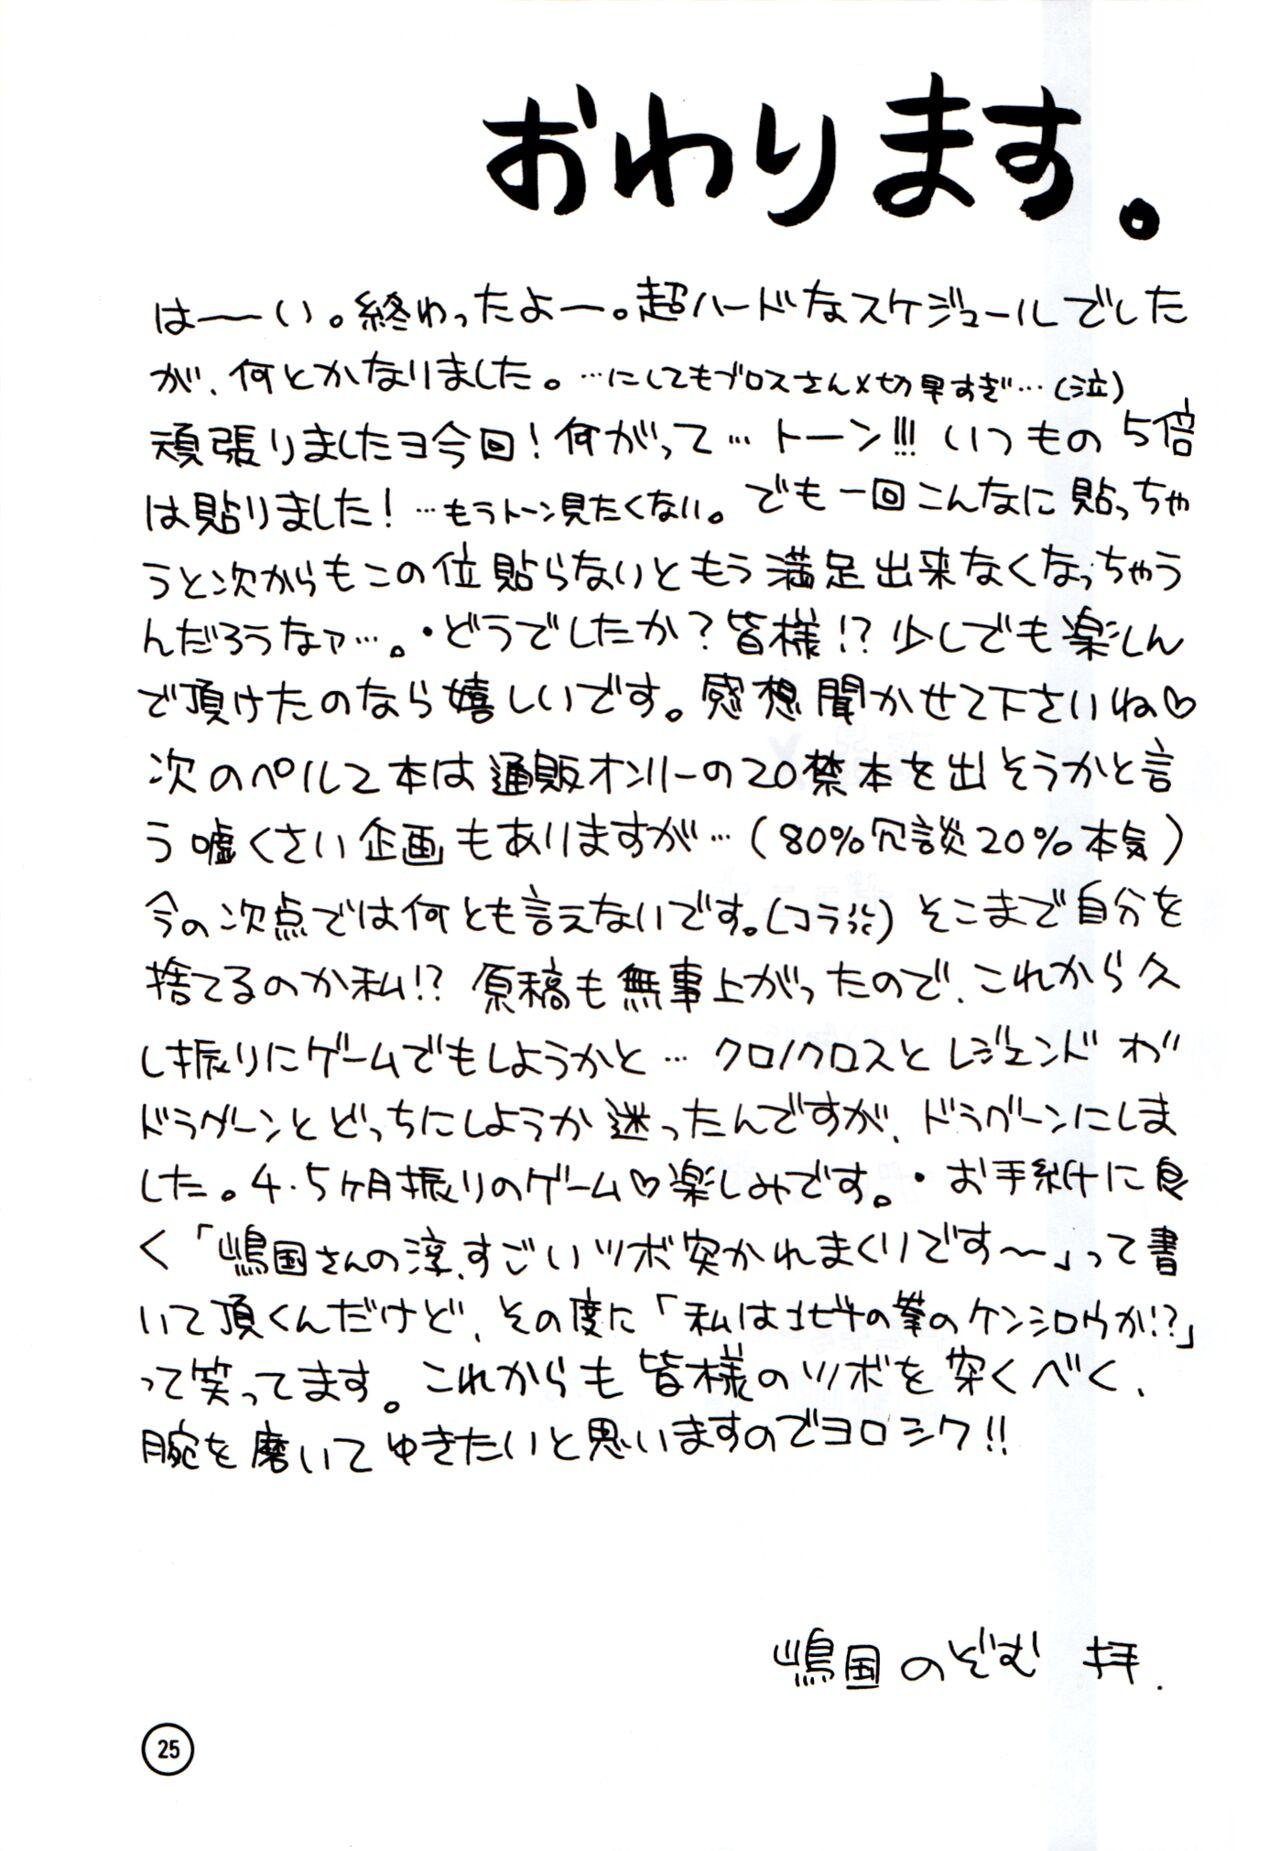 おわります。
は――い。終わったよー。超ハードなスケジュールでした
が、何とかなりました。…にしてもブロスさん〆切早すぎ…(泣)
頑張りましたヨ今回!何がって…トーン!!!いつもの5倍
は貼りました!…もうトーン見たくない。でも一回こんなに貼っちゃ
うと次からもこの位貼らないともう満足出来なくなっちゃう
んだろうなァ…。・どうでしたか?皆様!?少しでも楽しん
で頂けたのなら嬉しいです。感想聞かせて下さいね♡
次のペル2本は通販オンリーの20禁本を出そうかと言
う嘘くさい企画もありますが…(80%冗談20%本気)
今の次点では何とも言えないです。(コラ) そこまで自分を
捨てるのか私!? 原稿も無事上がったので、これから久
し振りにゲームでもしようかと…クロノクロスとレジェンドオブ
ドラグーンとどっちにしようか迷ったんですが、ドラグーンにしま
した。4・5ヶ月振りのゲーム♡楽しみです。・お手紙に良
く「嶋国さんの淳、すごいツボ突かれまくりです～」って書
いて頂くんだけど、その度に「私は北斗の拳のケンシロウか!?」
って笑ってます。これからも皆様のツボを突くべく、
腕を磨いてゆきたいと思いますのでヨロシク!!
嶋国のぞむ 拝.
25